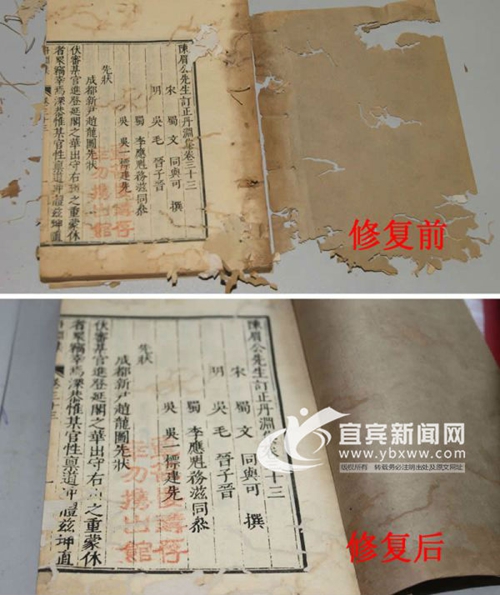 陳眉公先生訂正丹淵集卷三十三
宋 蜀 文 同與可 撰
明 吳 毛 晉子晉
蜀 李應魁務滋同叅
吳 吳一標建先
先狀
成都新尹趙龍圖先狀
伏審某官進登延閣之華出守右之重蒙休
者衆竊幸爲深恭惟某官性禀道冲凝兹坤直
修复前
陳眉公先生訂正丹淵集卷三十三
宋 蜀 文 同與可 撰
明 吳 毛 晉子晉
蜀 李應魁務滋同叅
吳 吳一標建先
先狀
成都新尹趙龍圖先狀
伏審某官進登延閣之華出守右之重蒙休
者衆竊幸爲深恭惟某官性禀道冲凝兹坤直
宜宾新闻网
www.ybxww.com
版权所有 转载务必注明出处及原文网址
修复后